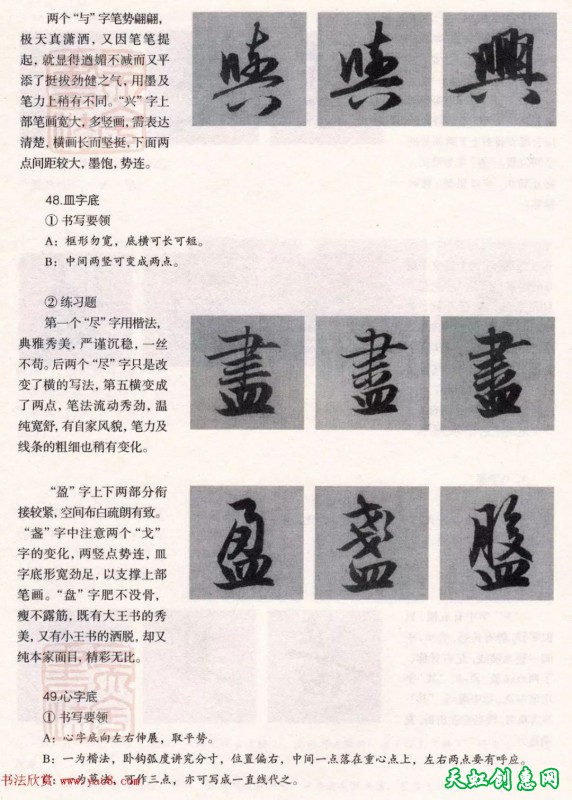 两个“与”字笔势翩翩，
极天真潇洒，又因笔笔提
起，就显得遒媚不减而又平
添了挺拔劲健之气，用墨及
笔力上稍有不同。“兴”字上
部笔画宽大，多竖画，需表达
清楚，横画长而坚挺，下面两
点间距较大，墨饱，势连。
與 與 興
48.皿字底
① 书写要领
A：框形勿宽，底横可长可短。
B：中间两竖可变成两点。
② 练习题
第一个“尽”字用楷法，
典雅秀美，严谨沉稳，一丝
不苟。后两个“尽”字只是改
变了横的写法，第五横变成
了两点，笔法流动秀劲，温
纯宽舒，有自家风貌，笔力及
线条的粗细也稍有变化。
盡 盡 盡
“盈”字上下两部分衔
接较紧，空间布白疏朗有致。
“盏”字中注意两个“戈”
字的变化，两竖点势连，皿
字底形宽劲足，以支撑上部
笔画。“盘”字肥不没骨，
瘦不露筋，既有大王书的秀
美，又有小王书的洒脱，却又
纯本家面目，精彩无比。
盈 盞 盤
49.心字底
① 书写要领
A：心字底向左右伸展，取平势。
B：一为楷法，卧钩弧度讲究分寸，位置偏右，中间一点落在重心点上，左右两点要有呼应。
一为草法，可作三点，亦可写成一直线代之。
书法欣赏
天虹创意网